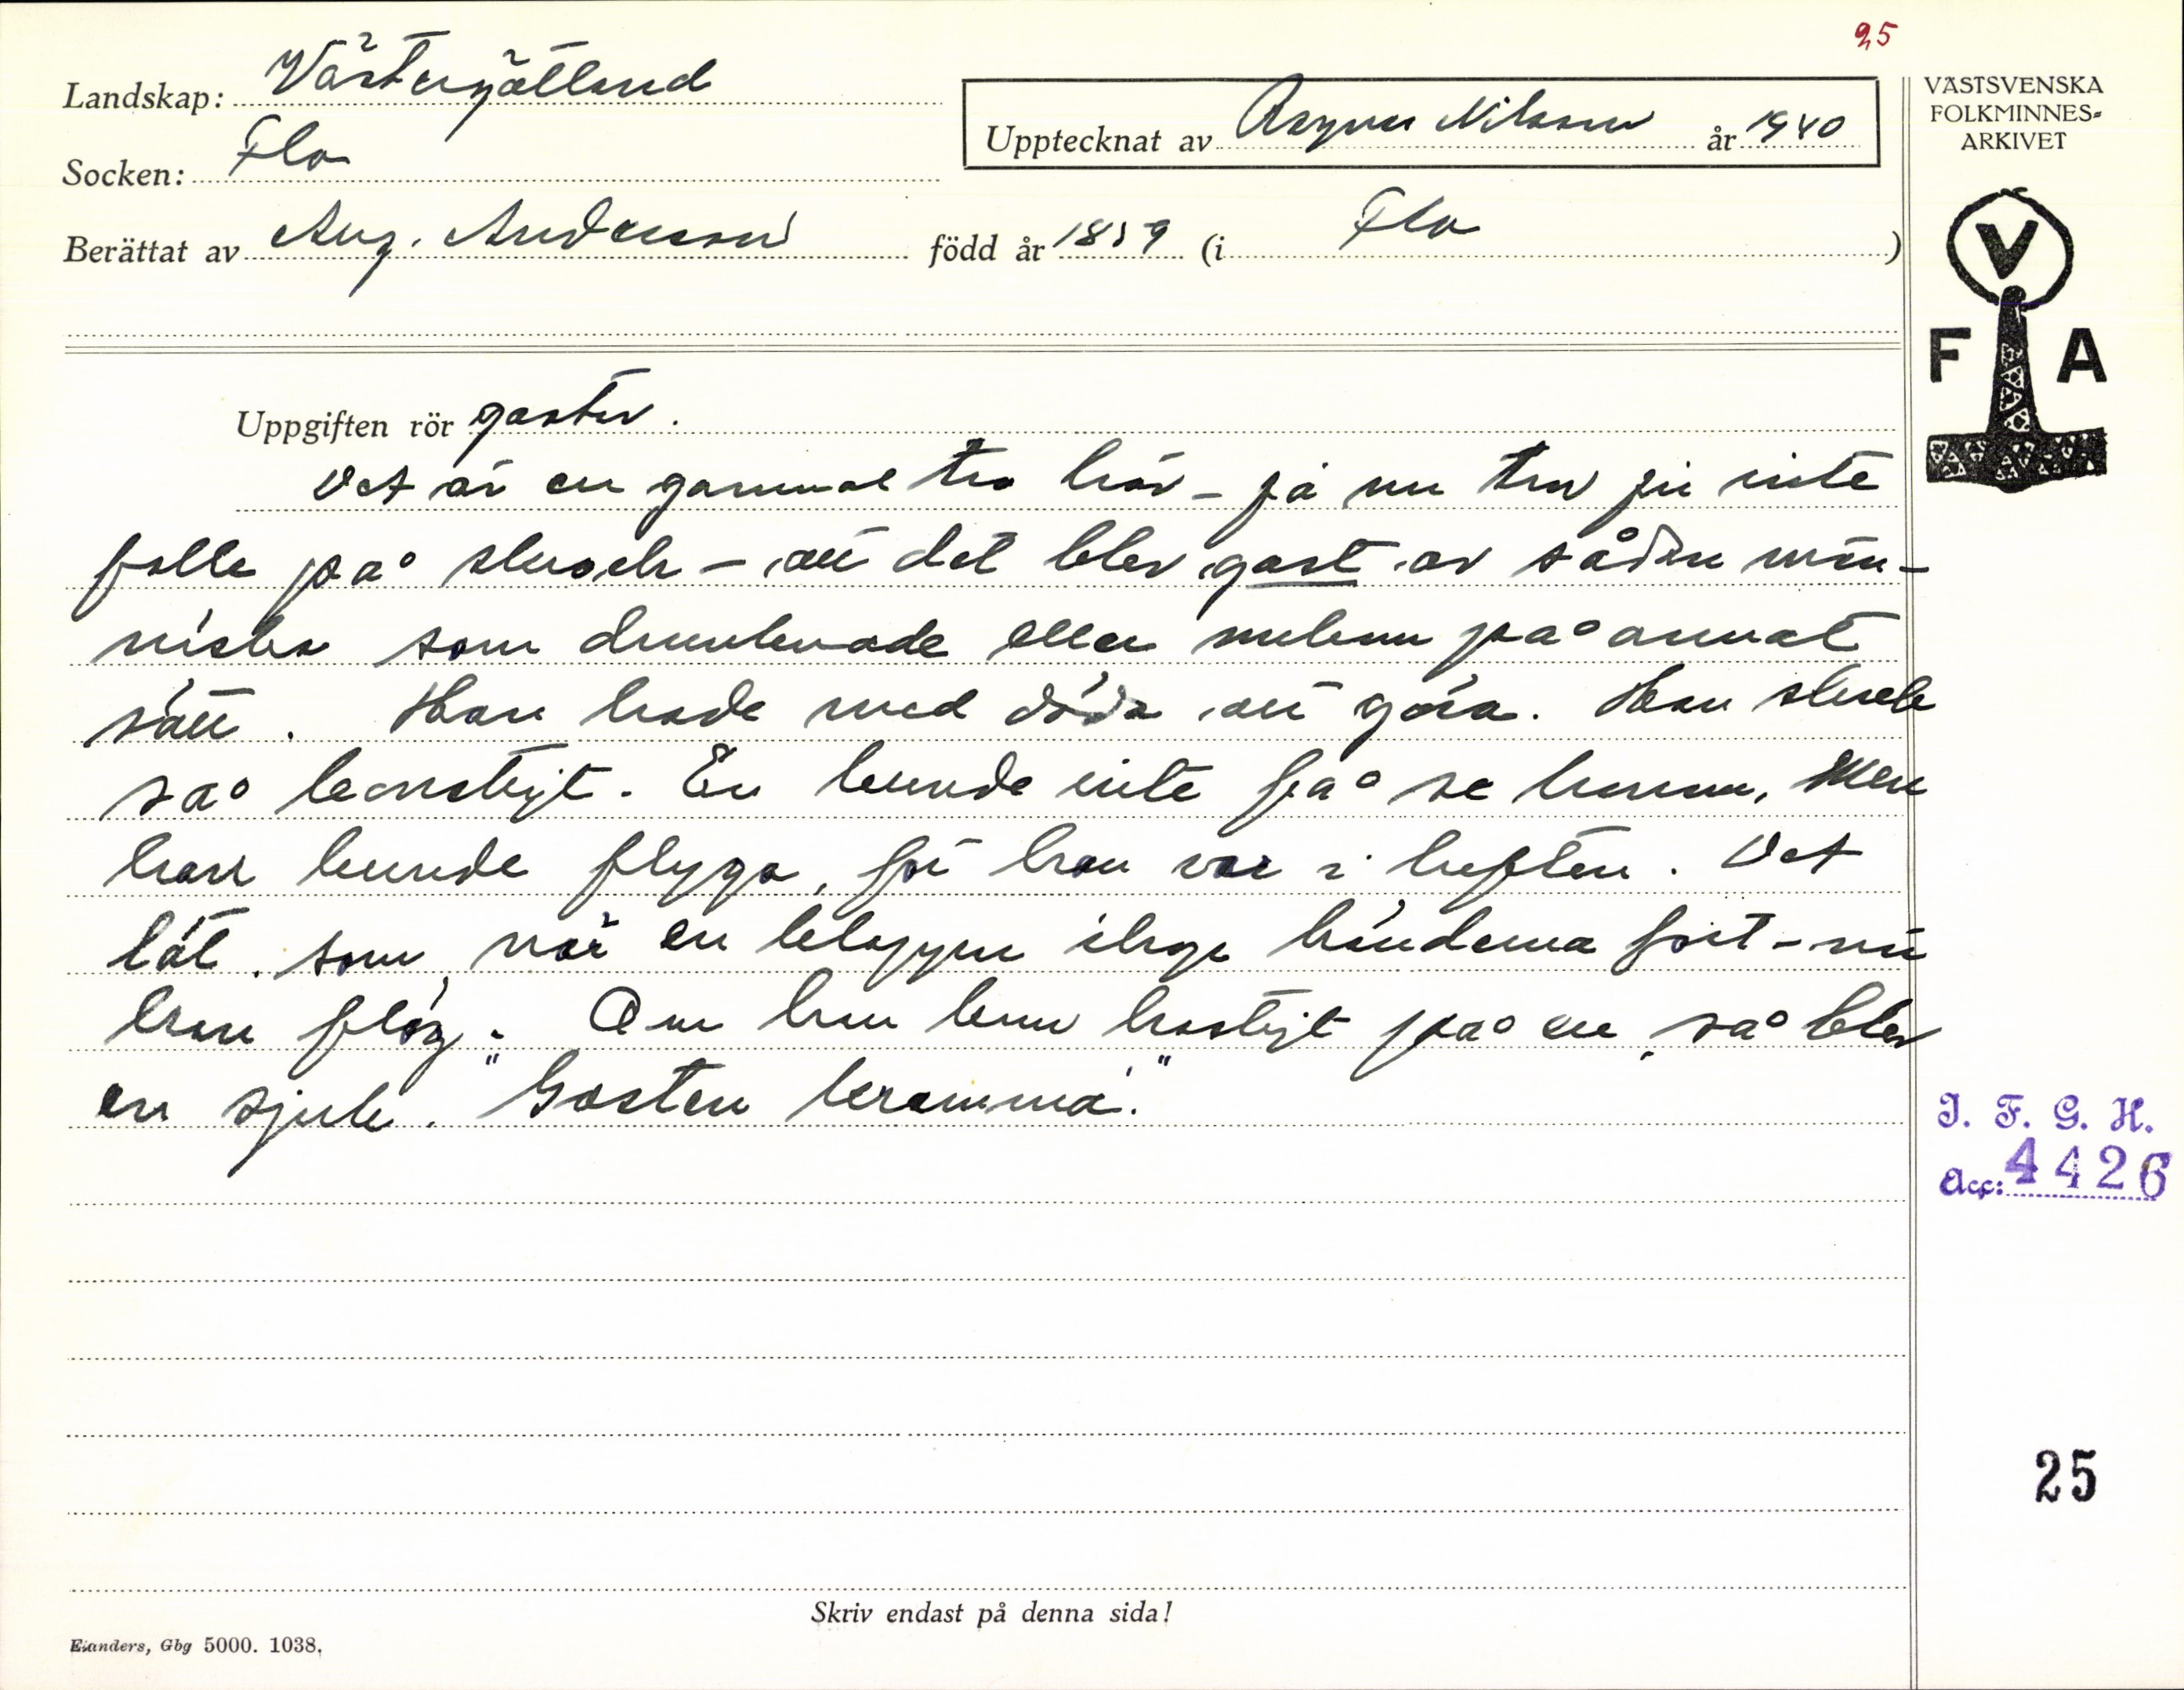 25
Landskap: Västergötland
Upptecknat av Ragnar Nilsson år 1940
VÄSTSVENSKA
FOLKMINNES-
ARKIVET
Socken: Flo
Berättat av Aug. Andersson född år 1859 (i Flo)
V
F A
Uppgiften rör gaster.
Det är en gammal tro här - ja nu tror ju inte
folk på skrock - att det blev gast av sådan män-
niska som drunknade eller omkom på annat
sätt. Han hade med döda att göra. Han skrek
så konstigt. En kunde inte få se honom. Men
han kunde flyga, för han var i luften. Det
lät som när en klappar ihop händerna fort - när
han flög. Om han kom hastigt på en, så blev
en sjuk. "Gasten kramma."
I. F. G. H.
Acc: 4426
25
Skriv endast på denna sida!
Elanders, Gbg 5000. 1038.